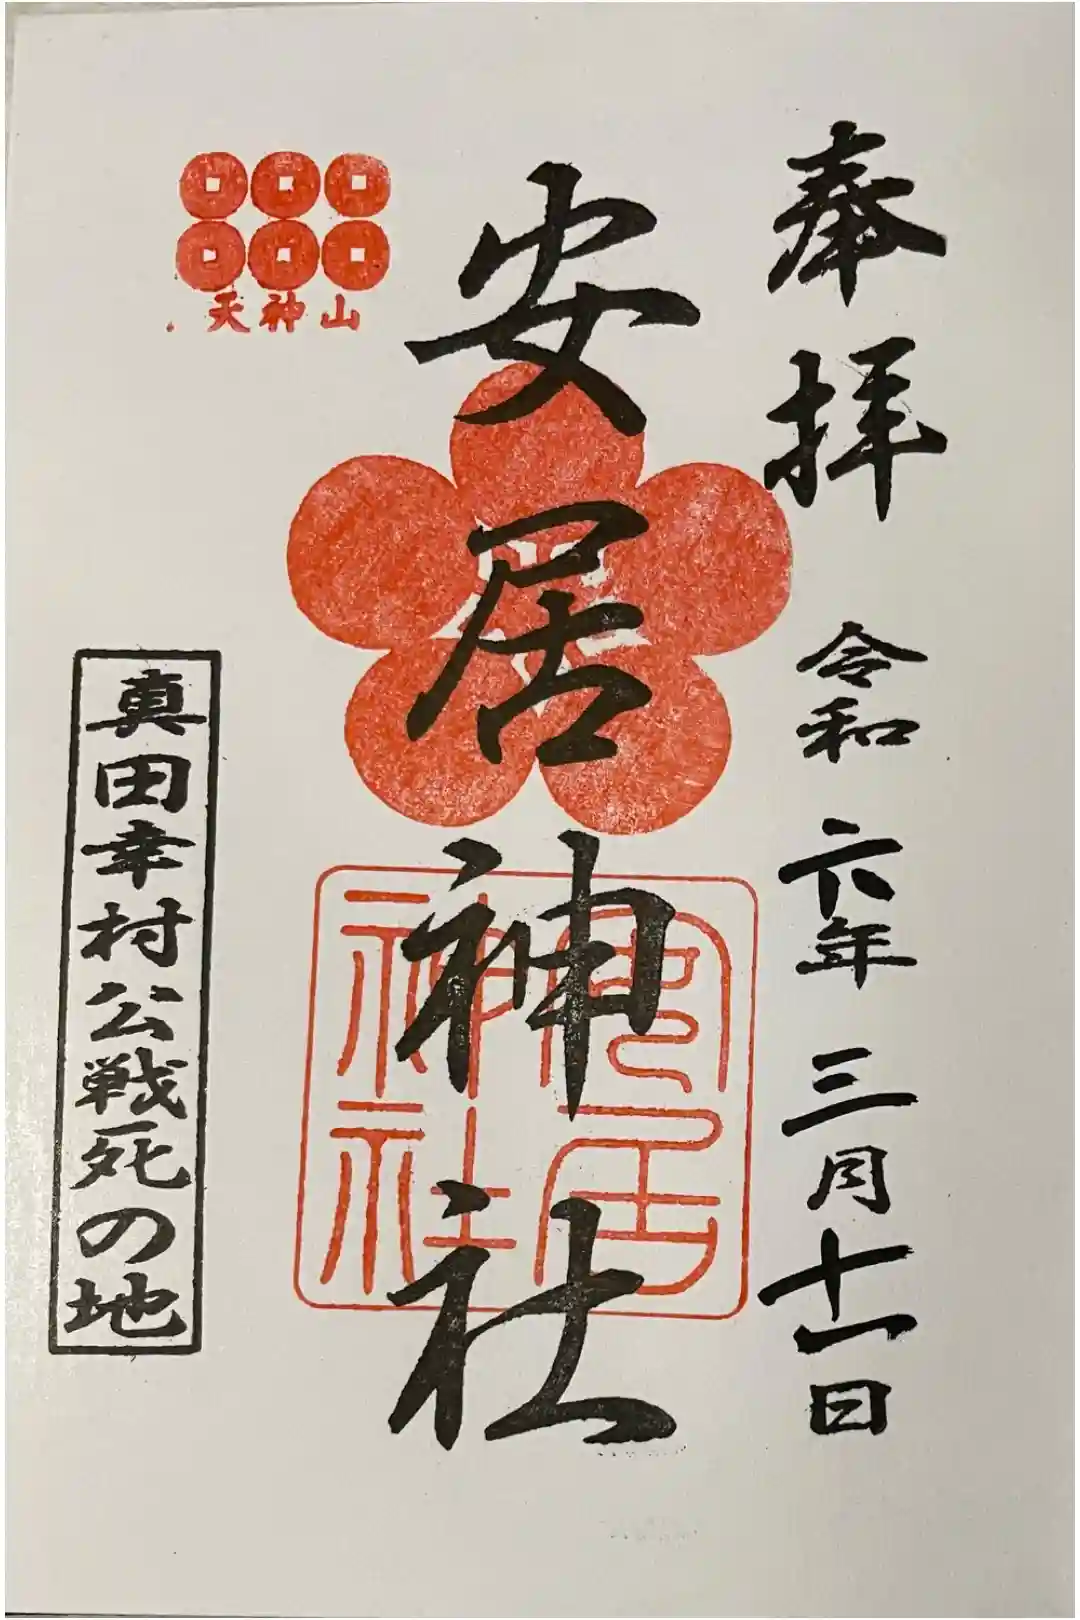 奉拝
令和六年三月十一日
安居神社
安居
神社
天神山
真田幸村公戦死の地